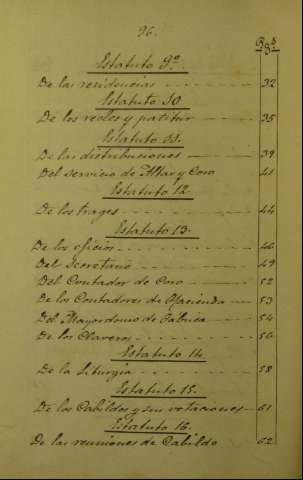 96.
Pgs
Estatuto 9º
De las residencias 32
Estatuto 10
De los recles y patitur 35
Estatuto 11.
De las distribuciones 39
Del servicio de Altar y Coro 41
Estatuto 12
De los trages 44
Estatuto 13.
De los oficios 46
Del Secretario 49
Del Contador de Coro 52
De los Contadores de Hacienda 53
Del Mayordomo de Fábrica 54
De los Claveros 56
Estatuto 14.
De la Liturgia 58
Estatuto 15.
De los Cabildos y sus votaciones 61
Estatuto 16.
De las reuniones de Cabildo 62